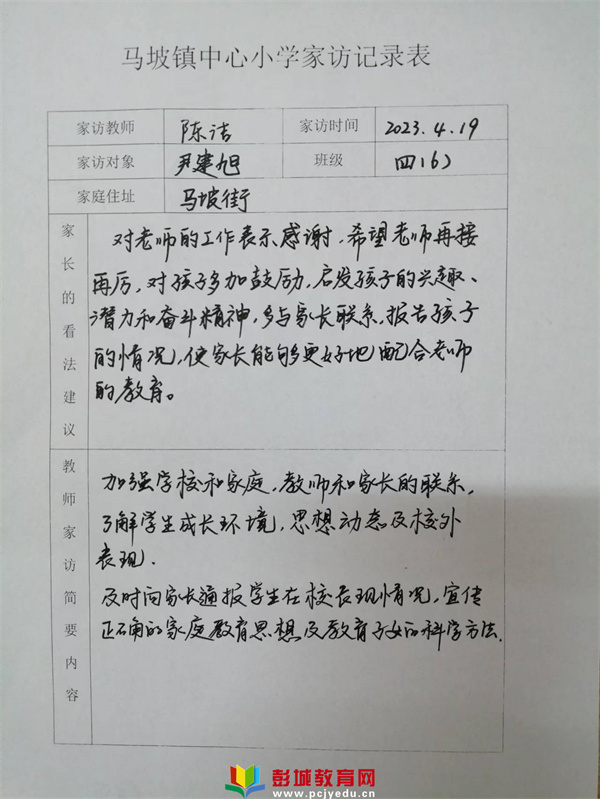 马坡镇中心小学家访记录表
家访教师 陈洁 家访时间 2023.4.19
家访对象 尹建旭 班级 四(6)
家庭住址 马坡街
家长的看法建议
对老师的工作表示感谢,希望老师再接
再厉,对孩子多加鼓励,启发孩子的兴趣、
潜力和奋斗精神,多与家长联系,报告孩子
的情况,使家长能够更好地配合老师
的教育。
教师家访简要内容
加强学校和家庭,教师和家长的联系,
了解学生成长环境,思想动态及校外
表现.
及时向家长通报学生在校表现情况,宣传
正确的家庭教育思想及教育子女的科学方法.
彭城教育网
www.pcjyedu.cn